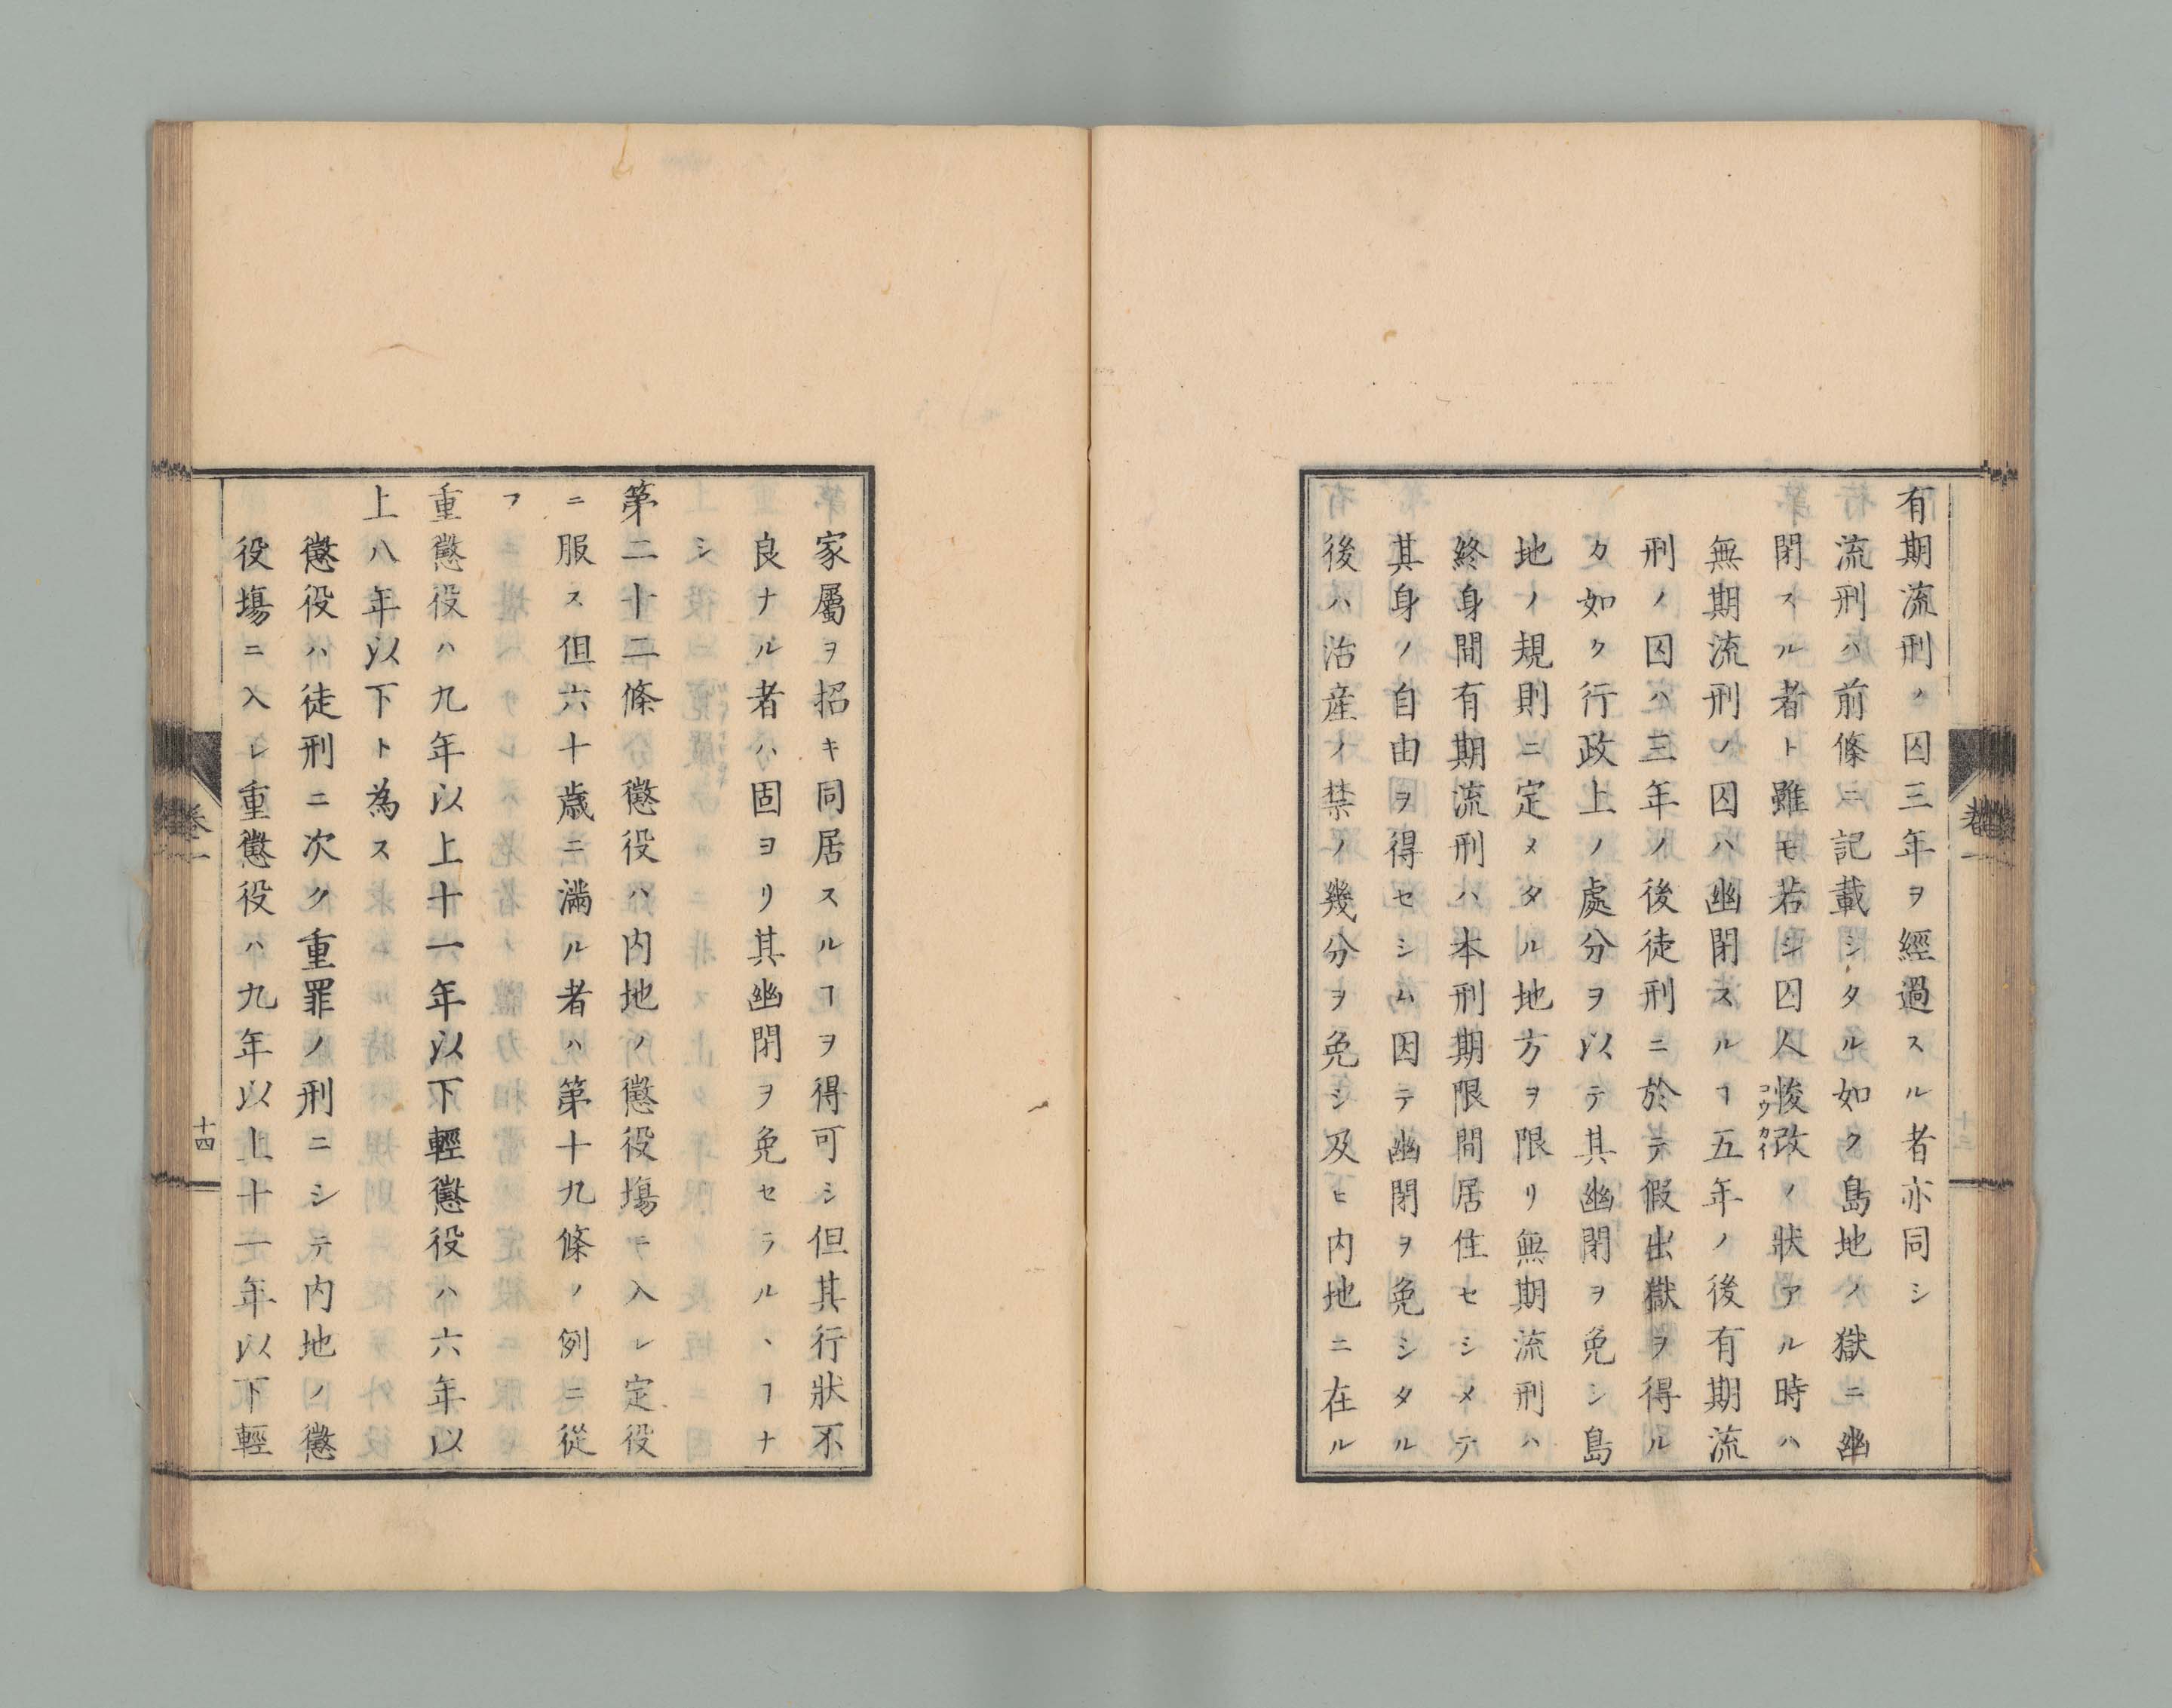 有期流刑ノ囚三年ヲ經過スル者亦同シ
流刑ハ前條ニ記載シタル如ク島地ノ獄ニ幽
閉スル者ト雖モ若シ囚人悛改ノ狀アル時ハ
コウカイ
無期流刑ノ囚ハ幽閉スルヿ五年ノ後有期流
刑ノ囚ハ三年ノ後徒刑ニ於テ假出獄ヲ得ル
カ如ク行政上ノ處分ヲ以テ其幽閉ヲ免シ島
地ノ規則ニ定メタル地方ヲ限リ無期流刑ハ
終身間有期流刑ハ本刑期限間居住セシメテ
其身ノ自由ヲ得セシム因テ幽閉ヲ免シタル
後ハ治産ノ禁ノ幾分ヲ免シ及ヒ内地ニ在ル
家屬ヲ招キ同居スルヿヲ得可シ但其行狀不
良ナル者ハ固ヨリ其幽閉ヲ免セラルヽヿナ
シ
第二十二條 懲役ハ内地ノ懲役場ニ入レ定役
ニ服ス但六十歳ニ滿ル者ハ第十九條ノ例ニ從
フ
重懲役ハ九年以上十一年以下輕懲役ハ六年以
上八年以下ト為ス
懲役ハ徒刑ニ次ク重罪ノ刑ニシテ内地ノ懲
役場ニ入レ重懲役ハ九年以上十一年以下輕
卷一
十四